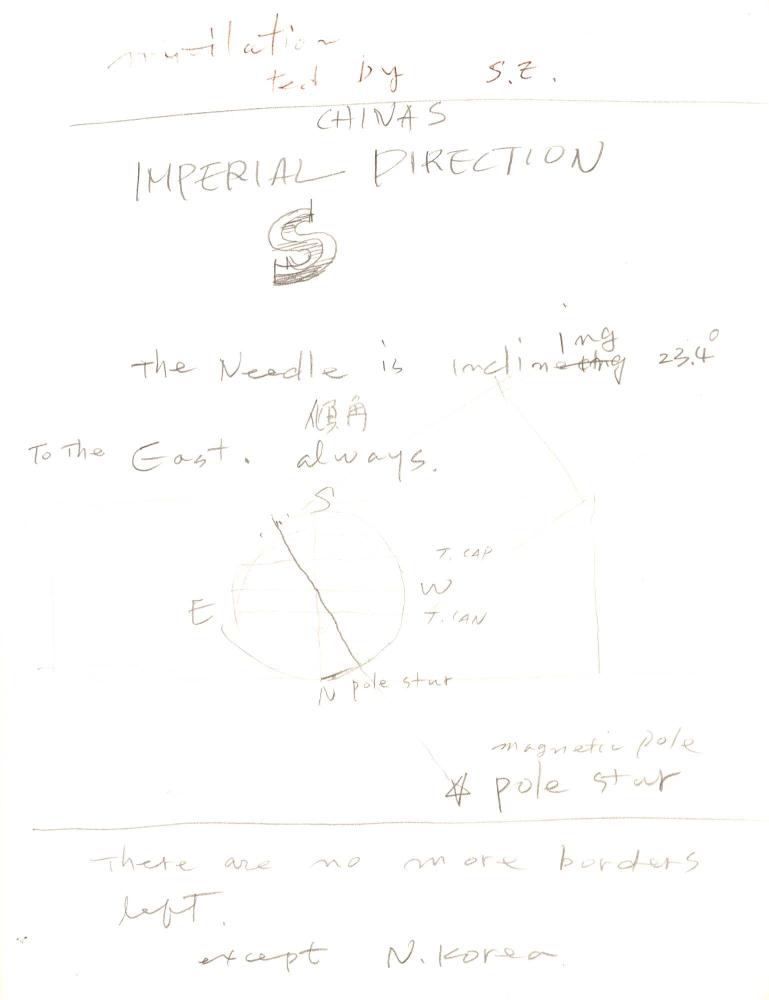 mutilation
text by S.Z.
CHINAS
IMPERIAL DIRECTION
S
N
ing
The Needle is inclineing 23.4°
傾角
To The East. always.
S
T. CAP
E
W
T. CAN
N pole star
magnetic pole
pole star
There are no more borders
left.
except N. Korea